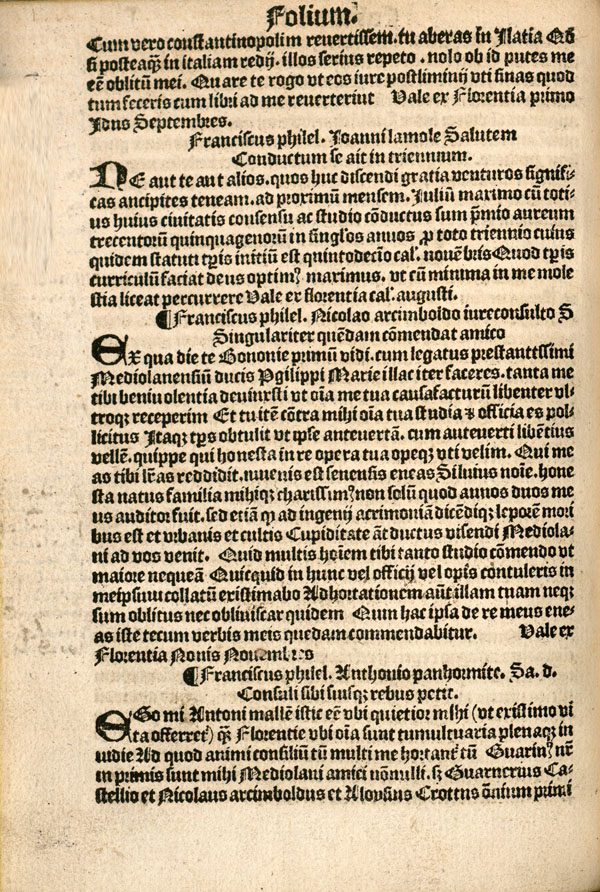 Folium.
Cum vero constantinopolim reuertissem. tu aberas In Ilatia Qđ
si posteaqȝ in italiam redij. illos serius repeto. nolo ob id putes me
eē oblitū mei. Quare te rogo vt eos iure postliminij vti sinas quod
tum feceris cum libri ad me reuerterint Vale ex Florentia primo
Idus Septembres.
Franciscus philel. Ioanni lamole Salutem
Conductum se ait in triennium.
NE aut te aut alios. quos huc discendi gratia venturos signifi⸗
cas ancipites teneam. ad proximū mensem. Iuliū maximo cū toti⸗
us huius ciuitatis consensu ac studio cōductus sum p̄mio aureum
trecentorū quinquagenorū in singl'os annos ꝓ toto triennio cuius
quidem statuti tp̄is initiū est quintodecīo cal. nouēbris Quod tp̄is
curriculū faciat deus optimꝰ maximus. vt cū minima in me mole
stia liceat percurrere Vale ex florentia cal. augusti.
¶Franciscus philel. Nicolao arcimboldo iureconsulto S
Singulariter quēdam cōmendat amico
EX qua die te Bononie primū vidi. cum legatus prestantissimi
Mediolanensiū ducis Pgilippi Marie illac iter faceres. tanta me
tibi beniuolentia deuinxsti vt oīa me tua causa facturū libenter vl⸗
troqȝ receperim Et tu itē cōtra mihi oīa tua studia & officia es pol⸗
licitus Itaqȝ tp̄s obtulit vt ipse anteuertā. cum auteuerti libētius
vellē. quippe qui honesta in re opera tua opeqȝ vti velim. Qui me
as tibi l'ras reddidit. iuuenis est senensis eneas Siluius noīe. hone
sta natus familia mihiqȝ charissimꝰ non solū quod annos duos me
us auditor fuit. sed etiā ꝙ ad ingenij acrimoniā dicēdiqȝ leporē mori
bus est et vrbanis et cultis Cupiditate āt ductus visendi Mediola⸗
ni ad vos venit. Quid multis hoīem tibi tanto studio cōmendo vt
maiore nequeā Quicquid in hunc vel officij vel opis contuleris in
meipsum collatū existimabo Adhortationem aūt illam tuam neqȝ
sum oblitus nec obliuiscar quidem Quin hac ipsa de re meus ene⸗
as iste tecum verbis meis quedam commendabitur. Vale ex
Florentia Nonis Nouembres
¶Franciscus philel. Anthonio panhormite. Sa. d.
Consuli sibi suisqȝ rebus petit.
EGo mi Antoni mallē istic eē vbi quietior mihi (vt existimo vi
ta offerret) qȝ Florentie vbi oīa sunt tumultuaria plenaqȝ in
uidie Ad quod animi consiliū tū multi me hortant̄ tū Guarinꝰ nr̄
in primis sunt mihi Mediolani amici nōnulli. sȝ Guarnerius Ca⸗
stellio et Nicolaus arcimboldus et Aloysius Crottus ōnium primi